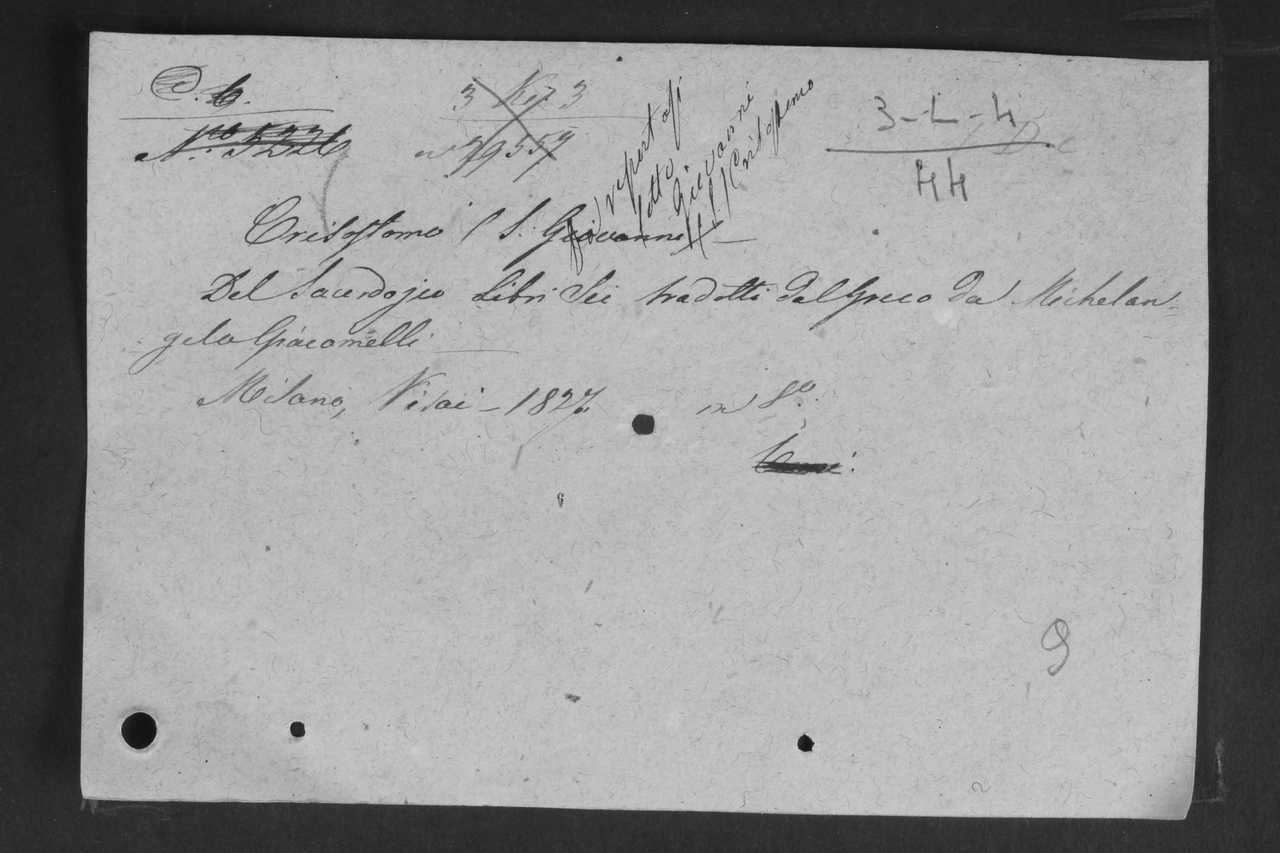 3-L-4
44
riportasi
sotto
Giovanni
(S.) Crisostomo
Crisostomo (S. Giovanni)
Del Sacerdozio Libri Sei tradotti dal Greco da Michelan-
gelo Giacomelli
Milano, Visai - 1827. in 8.o
9